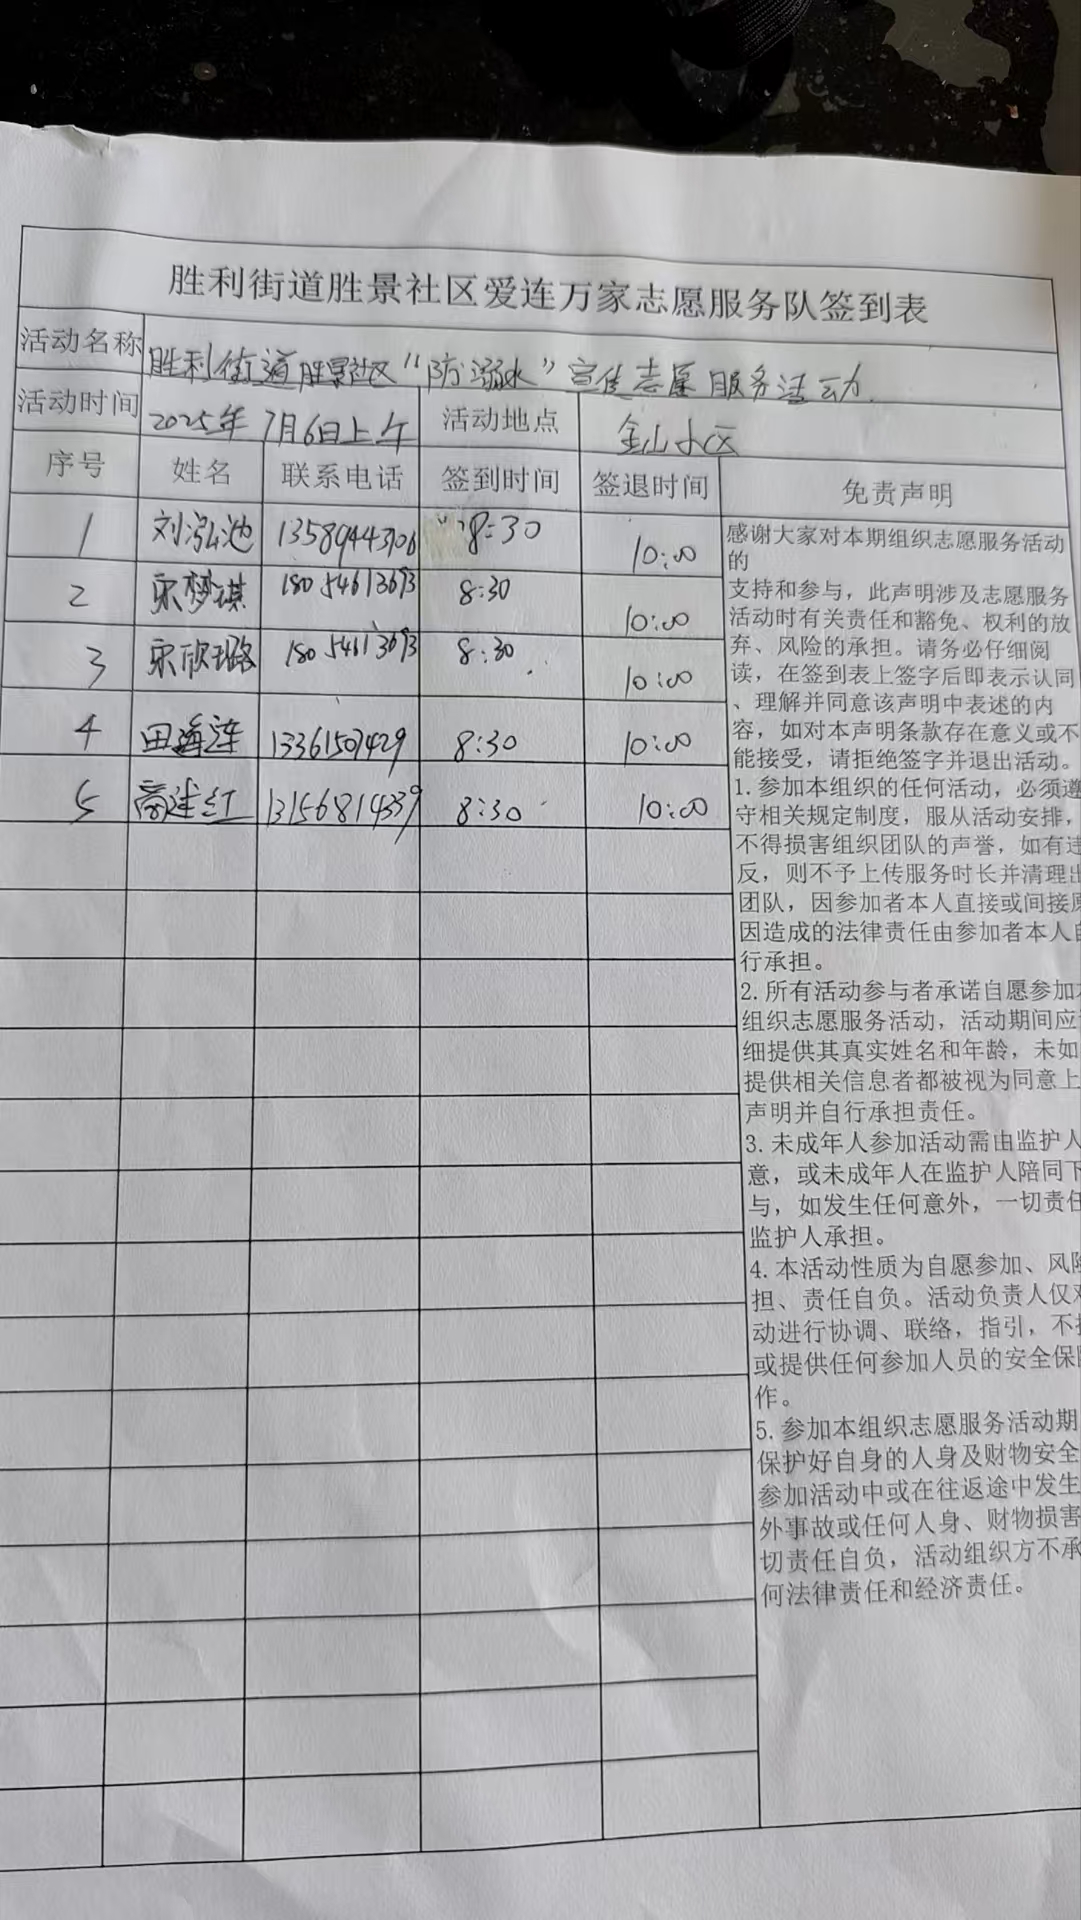 胜利街道胜景社区爱连万家志愿服务队签到表
活动名称 胜利街道胜景社区“防溺水”宣传志愿服务活动.
活动时间 2025年7月6日上午 活动地点 金山小区
序号 姓名 联系电话 签到时间 签退时间 免责声明
1 刘泓池 13589443706 8:30 10:00
2 宋梦琪 18054613693 8:30 10:00
3 宋欣璐 18054613693 8:30 10:00
4 田海连 13361507429 8:30 10:00
5 商连红 13156814339 8:30 10:00
感谢大家对本期组织志愿服务活动
的
支持和参与，此声明涉及志愿服务
活动时有关责任和豁免、权利的放
弃、风险的承担。请务必仔细阅
读，在签到表上签字后即表示认同
、理解并同意该声明中表述的内
容，如对本声明条款存在意义或不
能接受，请拒绝签字并退出活动。
1.参加本组织的任何活动，必须遵
守相关规定制度，服从活动安排，
不得损害组织团队的声誉，如有违
反，则不予上传服务时长并清理出
团队，因参加者本人直接或间接原
因造成的法律责任由参加者本人自
行承担。
2.所有活动参与者承诺自愿参加本
组织志愿服务活动，活动期间应
细提供其真实姓名和年龄，未如
提供相关信息者都被视为同意上
声明并自行承担责任。
3.未成年人参加活动需由监护人
意，或未成年人在监护人陪同下
与，如发生任何意外，一切责任
监护人承担。
4.本活动性质为自愿参加、风险
担、责任自负。活动负责人仅对
动进行协调、联络，指引，不
或提供任何参加人员的安全保障
作。
5.参加本组织志愿服务活动期
保护好自身的人身及财物安全
参加活动中或在往返途中发生
外事故或任何人身、财物损害
切责任自负，活动组织方不承
何法律责任和经济责任。